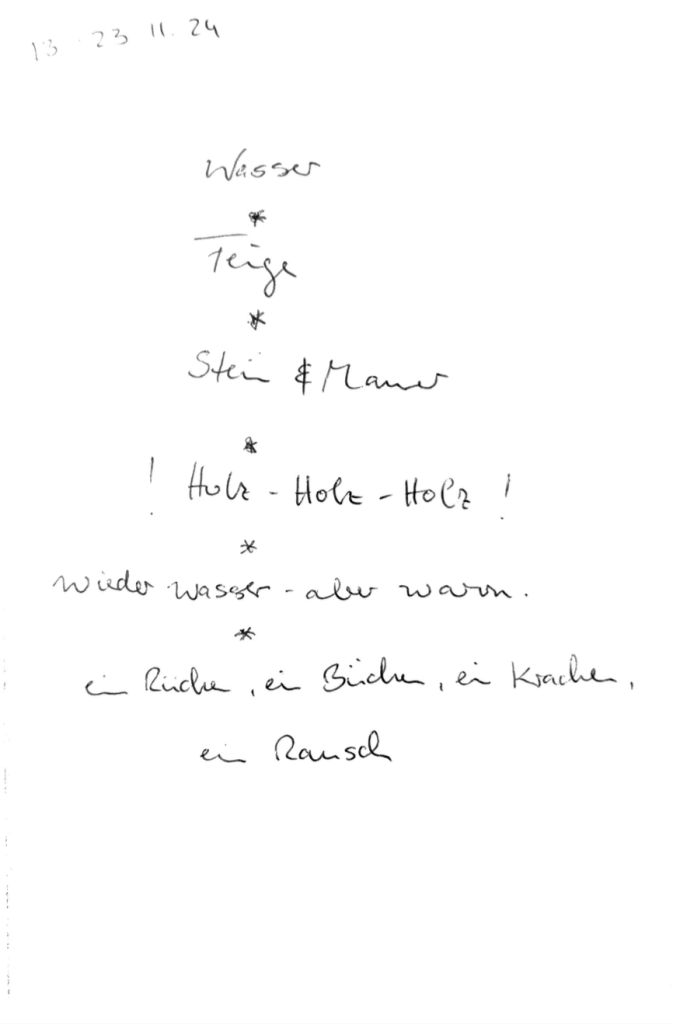 13 - 23 11. 24
Wasser
*
Teige
*
Stein & Mauer
*
! Holz - Holz - Holz !
*
wieder Wasser - aber warm.
*
ein , ein , ein Krachen,
ein Rausch